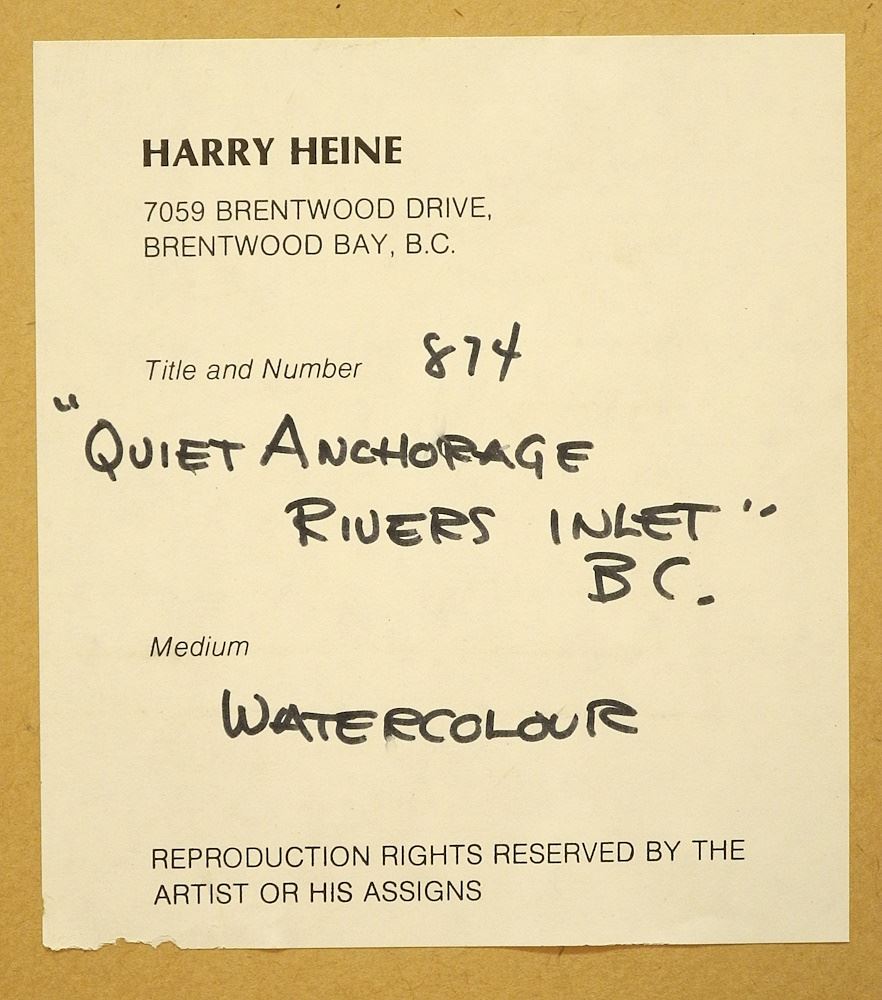 HARRY HEINE
7059 BRENTWOOD DRIVE,
BRENTWOOD BAY, B.C.
Title and Number 874
"QUIET ANCHORAGE
RIVERS INLET"
BC.
Medium
WATERCOLOUR
REPRODUCTION RIGHTS RESERVED BY THE
ARTIST OR HIS ASSIGNS